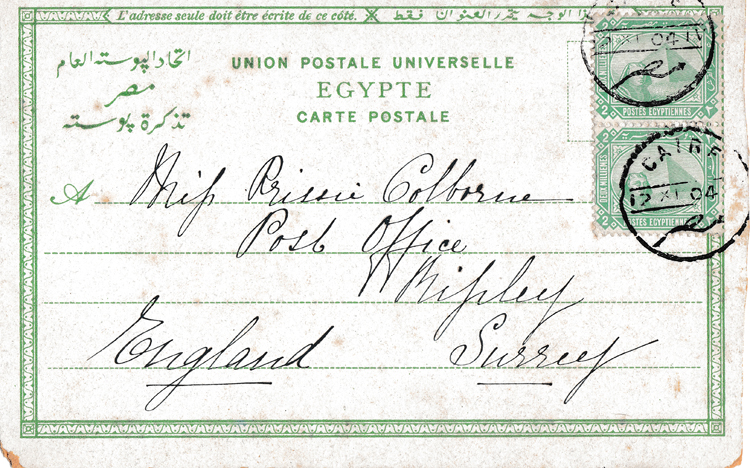 L'adresse seule doit être écrite de ce côté.
الوجه يتقرر العنوان فقط
اتحاد البوسته العام
مصر
تذكرة بوسته
UNION POSTALE UNIVERSELLE
EGYPTE
CARTE POSTALE
XI 04
2
POSTES EGYPTIENNES
CAIRE
12 XI 04
2
DEUX MILLIEMES
2
POSTES EGYPTIENNES
A Miss Prissie Colborne
Post Office
Ripley
England Surrey